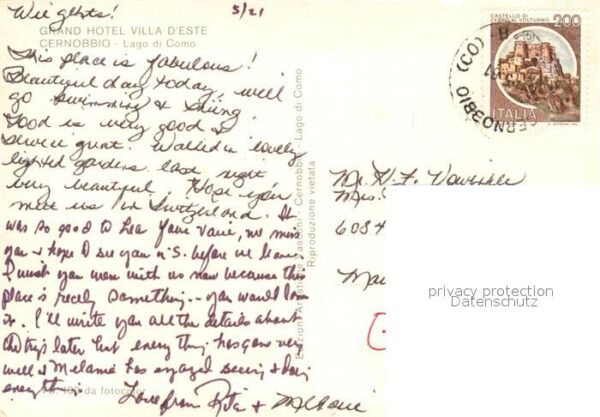 Wrights!
5/21
GRAND HOTEL VILLA D'ESTE
CERNOBBIO - Lago di Como
This place is fabulous!
Beautiful day today, will
go swimming & skiing
Food is very good &
service great. Walked in lovely
lighted gardens last night
very beautiful. Hope you
meet us in Switzerland. It
was so good to hear your voice, we miss
you & hope to see you in S. before we leave.
I wish you were with us now because this
place is really something -- you would love
it. I'll write you all the details about
the trip later but everything has gone very
well & Melanie has enjoyed seeing & doing
everything.
Love from Rita & Melanie
da fotocolor
Cernobbio - Lago di Como
Riproduzione vietata
CASTELLO DI
CERRO AL VOLTURNO
200
ITALIA
CERNOBBIO (CO)
Mr. H. F.
Mrs.
6084
privacy protection
Datenschutz